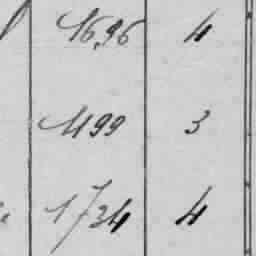 1696 4
1199 3
1734 4